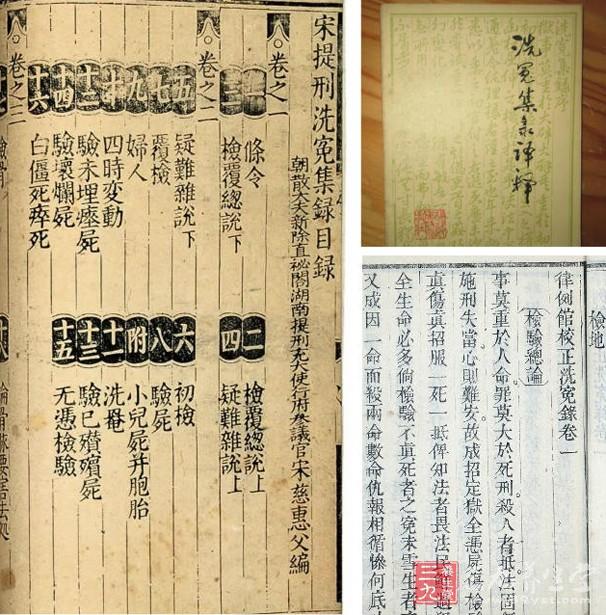 宋提刑洗冤集録目録
朝散大夫新除直祕閣湖南提刑充大使行府參議官宋慈惠父編
卷之一
條令
二 檢覆總說上
三 檢覆總說下
四 疑難雜說上
卷之二
五 疑難雜說下
六 初檢
七 覆檢
八 驗屍
九 婦人
附 小兒屍并胞胎
十 四時変動
十一 洗罨
十二 驗未埋瘞屍
十三 驗已殯殯屍
十四 驗壞爛屍
十五 无憑檢驗
十六 白僵死瘁死
卷之三
驗骨
十八 論骨脉要害去処
洗冤集录译释
檢地
律例館校正洗冤錄卷一
檢驗總論
事莫重於人命罪莫大於死刑殺人者抵法固
施刑失當心則難安故成招定獄全憑屍傷檢
真傷真招服一死一抵俾知法者畏法民
全生命必多倘檢驗不真死者之冤未雪生者
又成因一命而殺兩命數命仇報相循慘何底
三九养生堂